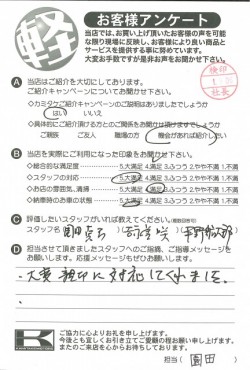 軽
お客様アンケート
当店では、お買い上げ頂いたお客様の声を可能
な限り現場に反映し、お客様により良い商品と
サービスを提供する事に努めています。
大変お手数ですが是非お声をお聞かせ下さい。
検印
社長
A 当店はご紹介を大切にしております。
ご紹介キャンペーンについてお聞かせ下さい。
◇カミタケご紹介キャンペーンのご説明はありましたでしょうか
はい いいえ
◇具体的にご紹介頂ける方とのご関係をお聞かせ頂けますでしょうか
ご親族 ご友人 職場の方 機会があれば紹介したい
B 当店を実際にご利用になった印象をお聞かせ下さい。
◇総合的な満足度 5.大満足 4.満足 3.ふつう 2.やや不満 1.不満
◇スタッフの対応 5.大満足 4.満足 3.ふつう 2.やや不満 1.不満
◇お店の雰囲気、清掃 5.大満足 4.満足 3.ふつう 2.やや不満 1.不満
◇納車時のお車の状態 5.大満足 4.満足 3.ふつう 2.やや不満 1.不満
C 評価したいスタッフがいれば教えてください。(複数回答可)
スタッフ名
D 担当させて頂きましたスタッフへのご指摘、ご指導メッセージを
お願いします。応援メッセージもぜひお願いいたします。
大変親切に対応してくれました。
K
ご協力に心よりお礼を申し上げます。
今後とも宜しくお引き立てご愛顧の程お願い申し上げます。
またのご来店を心からお待ちしております。
担当( 園田 )